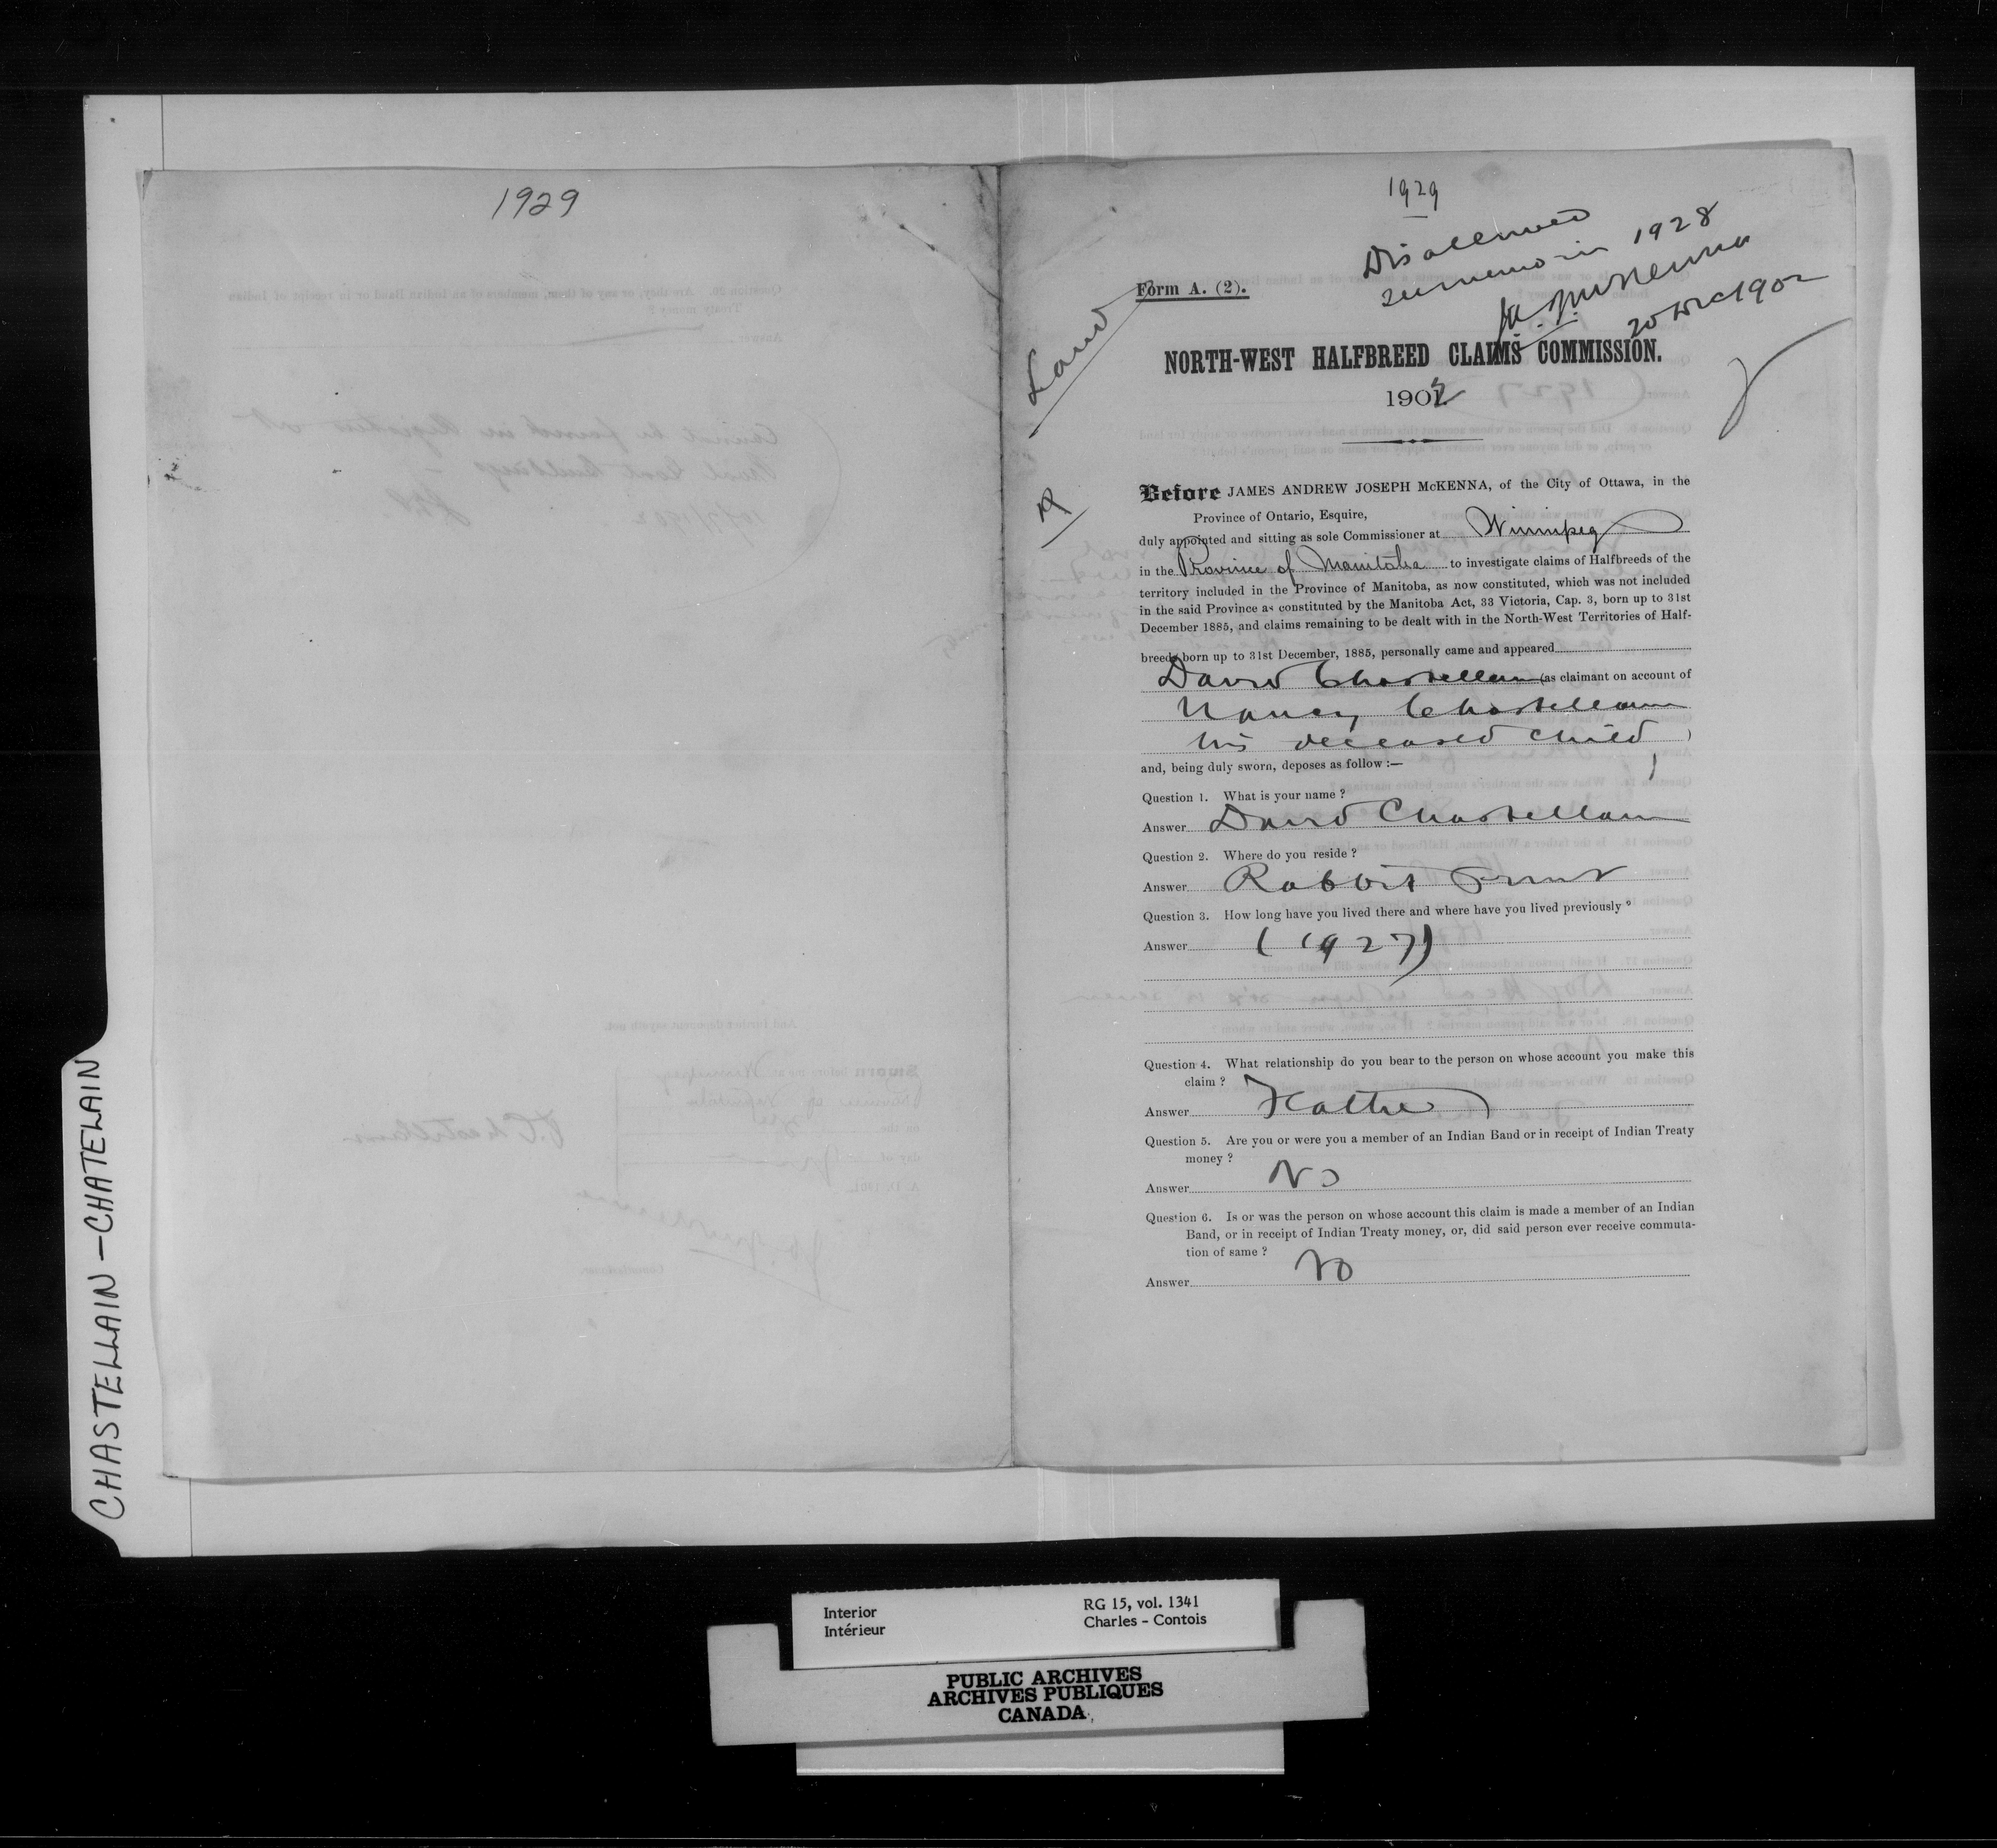 1929
1929
Disallowed
See memo in 1928
J.A.J. McKenna
20 Dec 1902
Land
Form A. (2).
NORTH-WEST HALFBREED CLAIMS COMMISSION.
1902
Before JAMES ANDREW JOSEPH McKENNA, of the City of Ottawa, in the
Province of Ontario, Esquire,
duly appointed and sitting as sole Commissioner at Winnipeg
in the Province of Manitoba to investigate claims of Halfbreeds of the
territory included in the Province of Manitoba, as now constituted, which was not included
in the said Province as constituted by the Manitoba Act, 33 Victoria, Cap. 3, born up to 31st
December 1885, and claims remaining to be dealt with in the North-West Territories of Half-
breeds born up to 31st December, 1885, personally came and appeared
David Chastellain (as claimant on account of
Nancy Chastellain
his deceased child )
and, being duly sworn, deposes as follow :—
Question 1. What is your name ?
Answer David Chastellain
Question 2. Where do you reside ?
Answer Rabbit Point
Question 3. How long have you lived there and where have you lived previously ?
Answer (1927)
Question 4. What relationship do you bear to the person on whose account you make this
claim ?
Answer Father
Question 5. Are you or were you a member of an Indian Band or in receipt of Indian Treaty
money ?
Answer No
Question 6. Is or was the person on whose account this claim is made a member of an Indian
Band, or in receipt of Indian Treaty money, or, did said person ever receive commuta-
tion of same ?
Answer No
CHASTELLAIN – CHATELAIN
Interior
Intérieur
RG 15, vol. 1341
Charles - Contois
PUBLIC ARCHIVES
ARCHIVES PUBLIQUES
CANADA